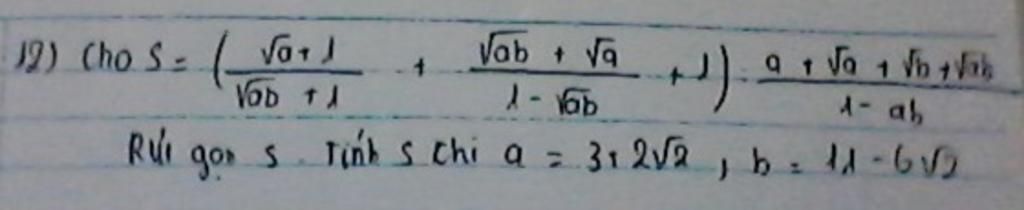 12) Cho S = ( (√a + 1)/(√ab + 1) + (√ab + √a)/(1 - √ab) + 1 ) : (a + √a + √b + √ab)/(1 - ab)
Rút gọn S. Tính S chi a = 3 + 2√2, b = 11 - 6√2